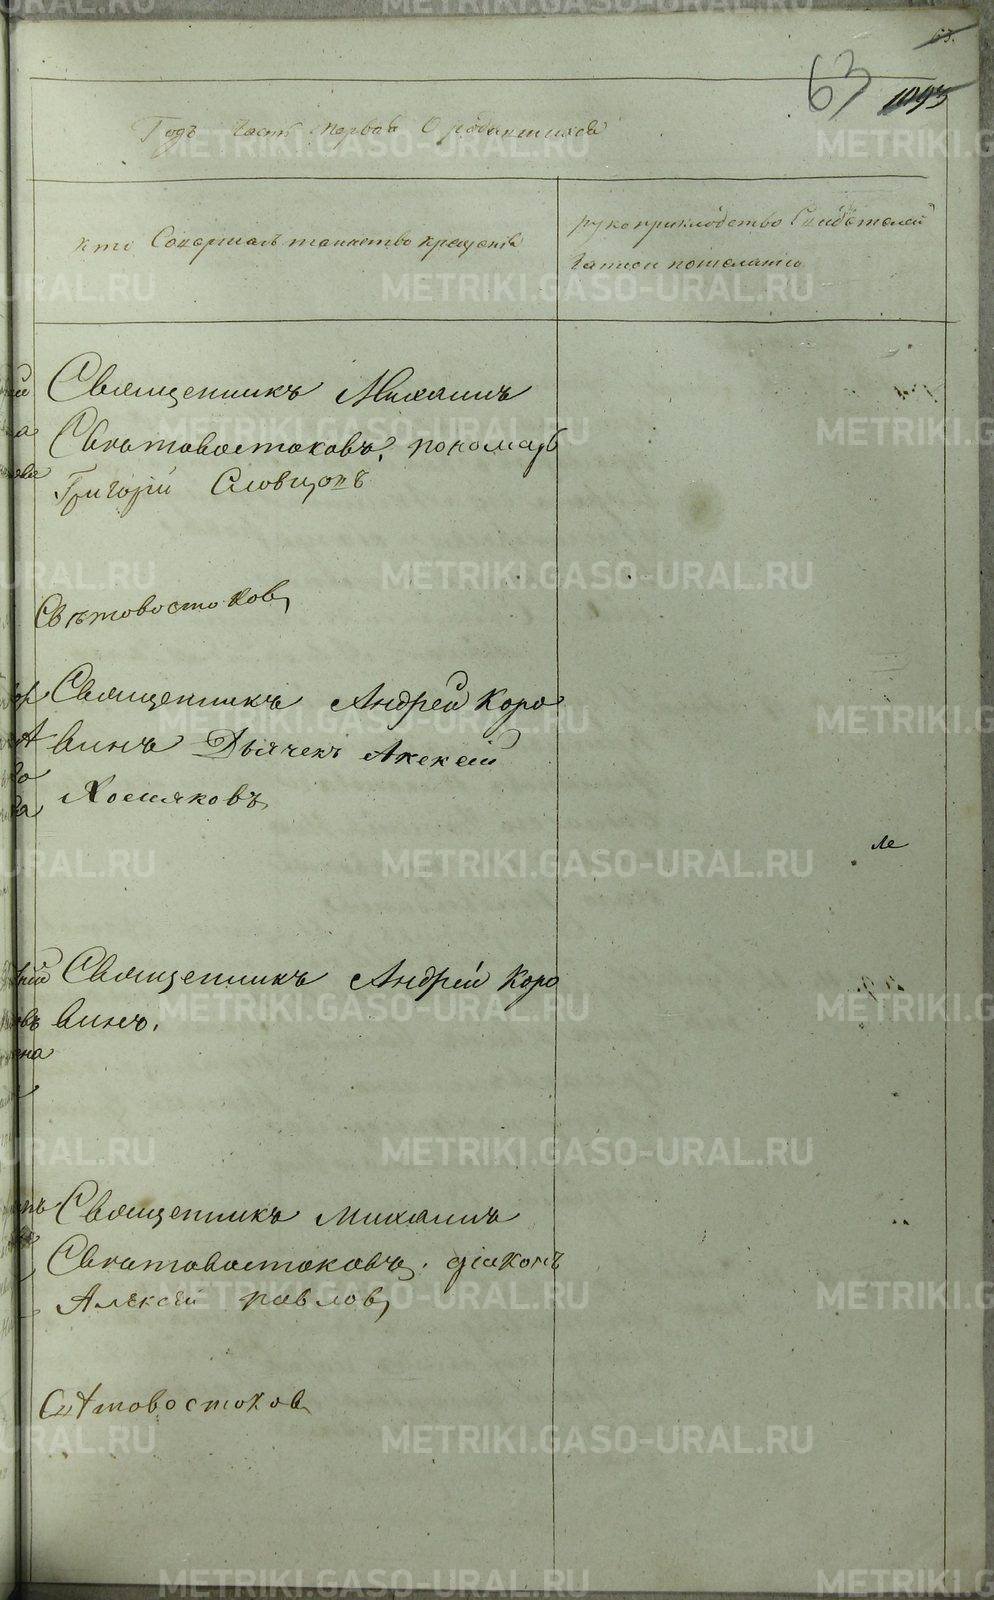 63.
63 1093
Годъ Часть первая О родившихся
кто Совершалъ таинство крещенiя
рукоприкладство Свидѣтелей
Записи пожеланiю
Священникъ Михаилъ
Свѣтовостоковъ, пономарь
Григорiй Словцовъ
Свѣтовостоковъ
Священникъ Андрей Коро
винъ Дьячекъ Алексей
Хомяковъ
Священникъ Андрей Коро
винъ.
Священникъ Михаилъ
Свѣтовостоковъ. дiаконъ
Алѣксей Павловъ
Свѣтовостоковъ